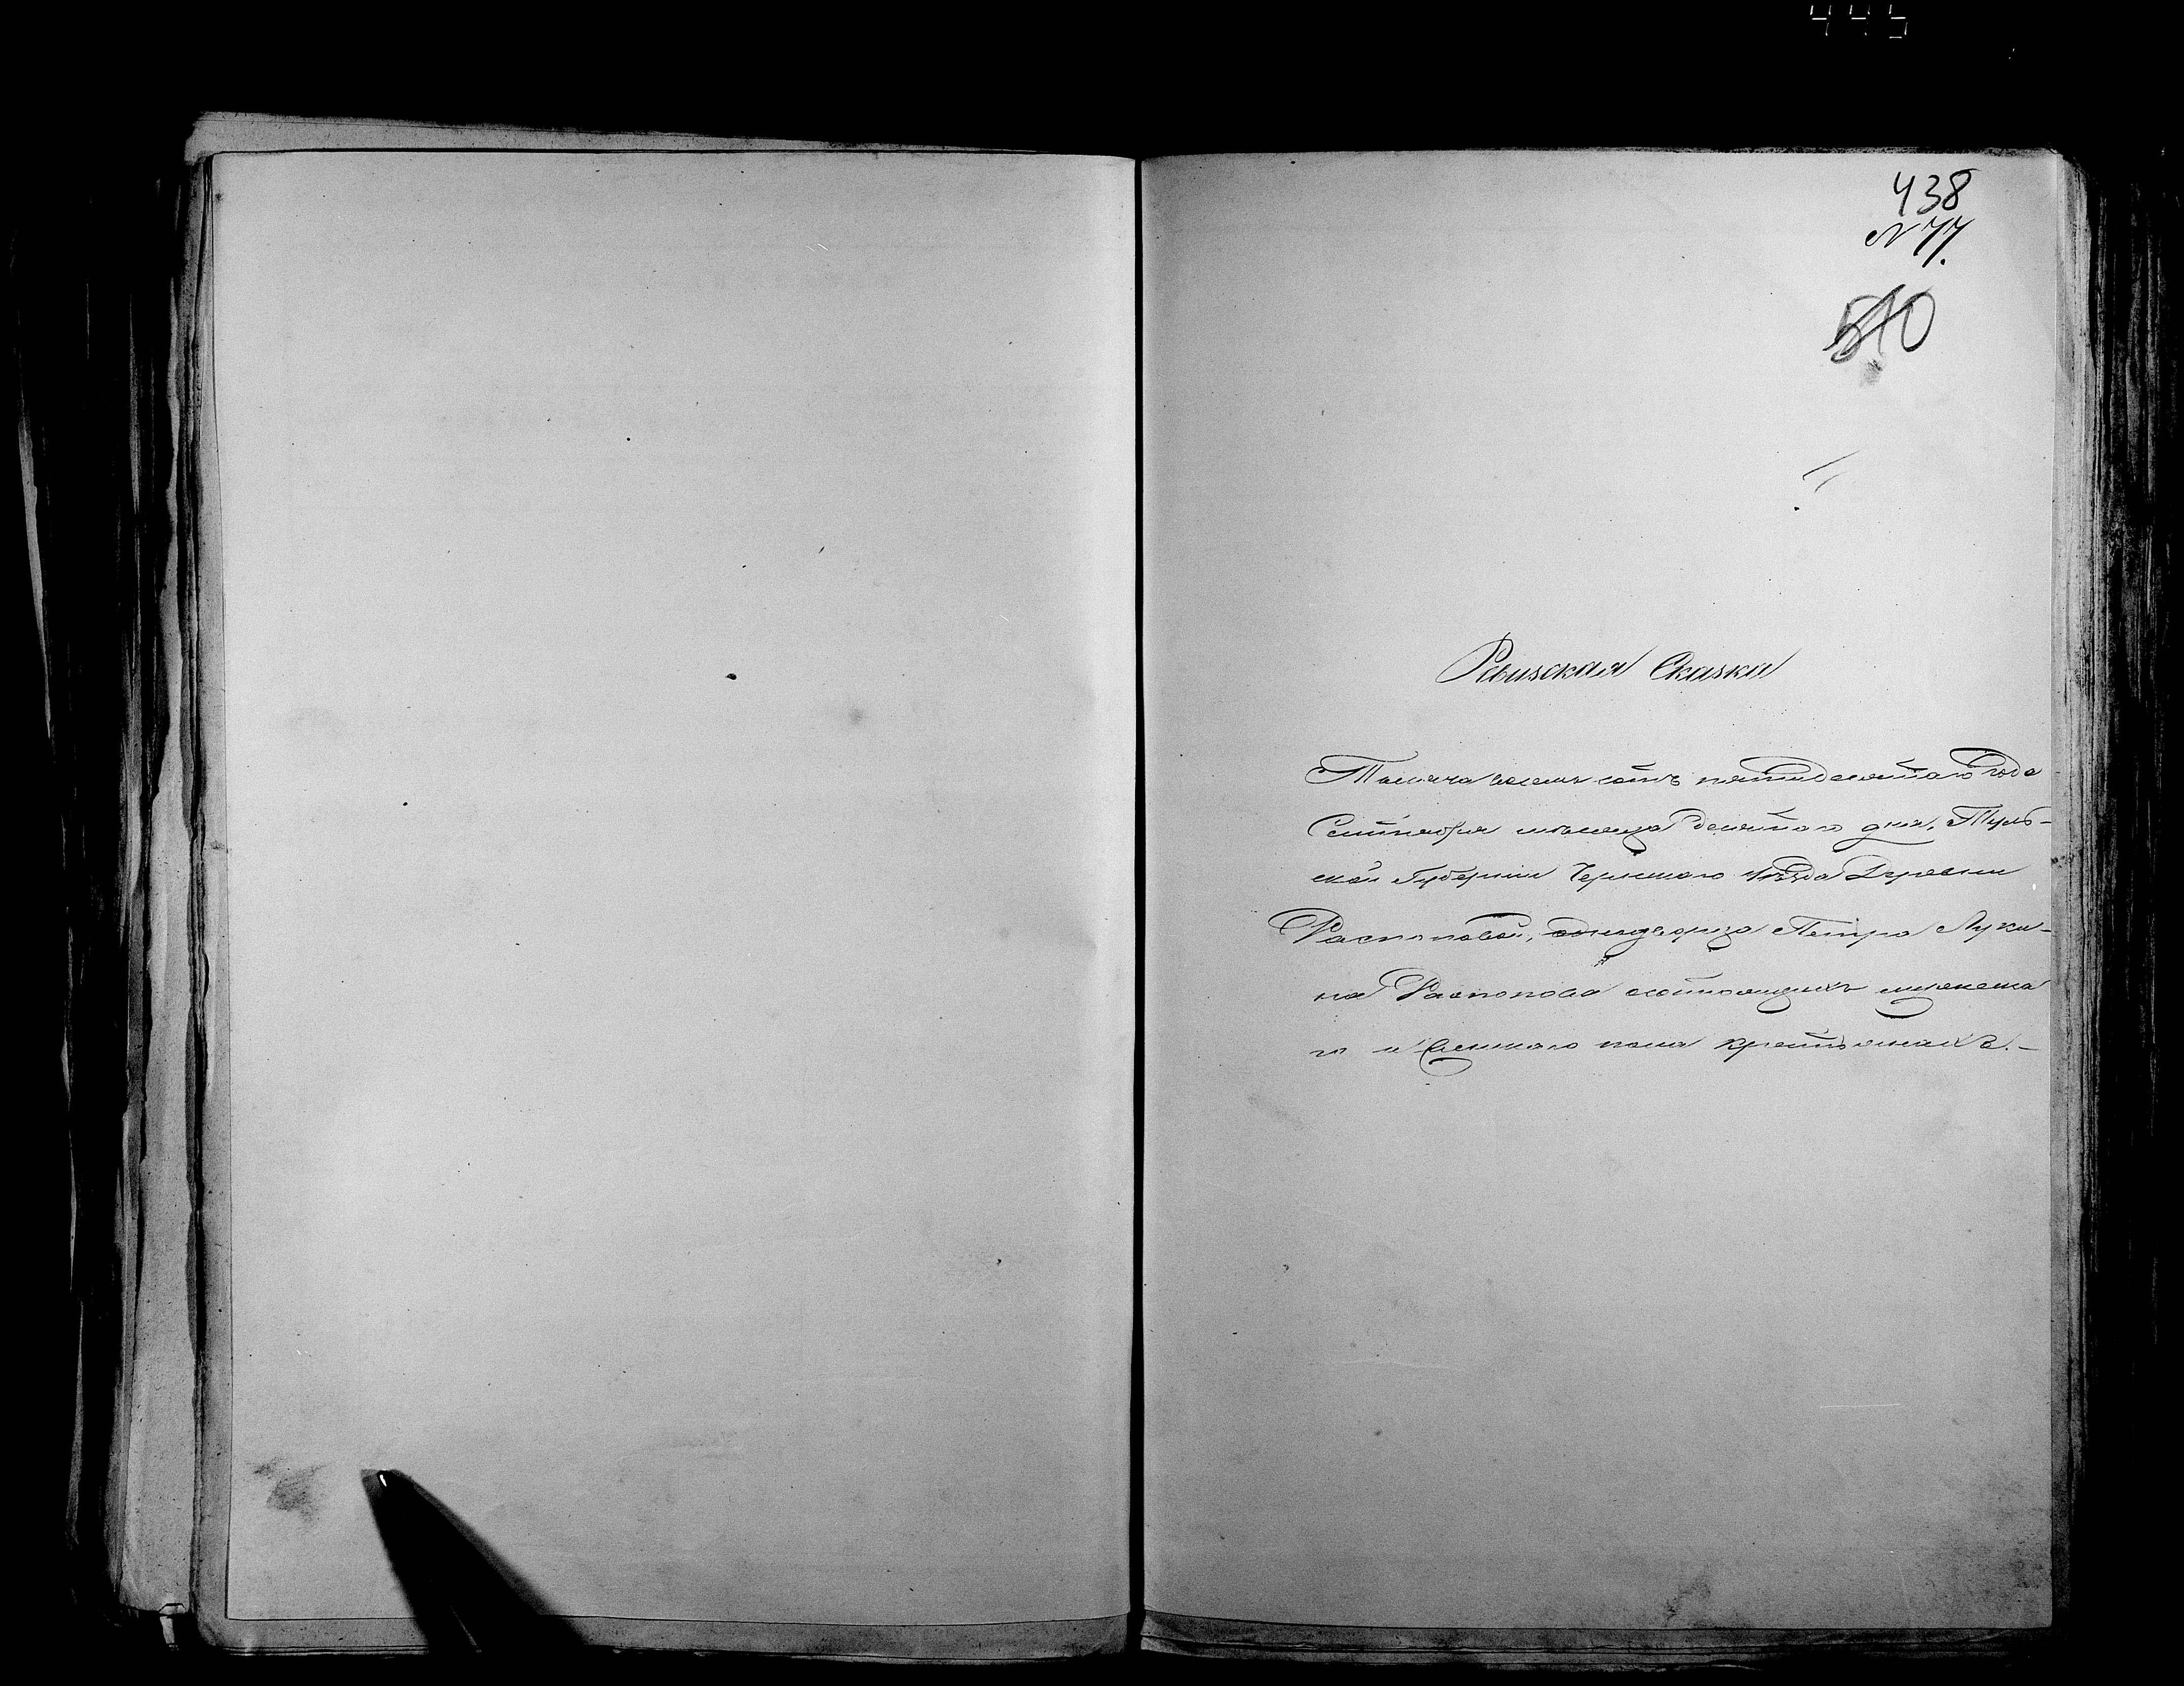 445
438
№ 77.
510
Ревизская Сказка
Тысяча восемь сотъ пятидесятаго года
Сентября месяца десятаго дня, Туль-
ской Губернии Чернскаго уезда Деревни
Распоповой, однодворца Петра Луки-
на Распопова состоящихъ мужеска
го и женскаго пола крестьянахъ.-